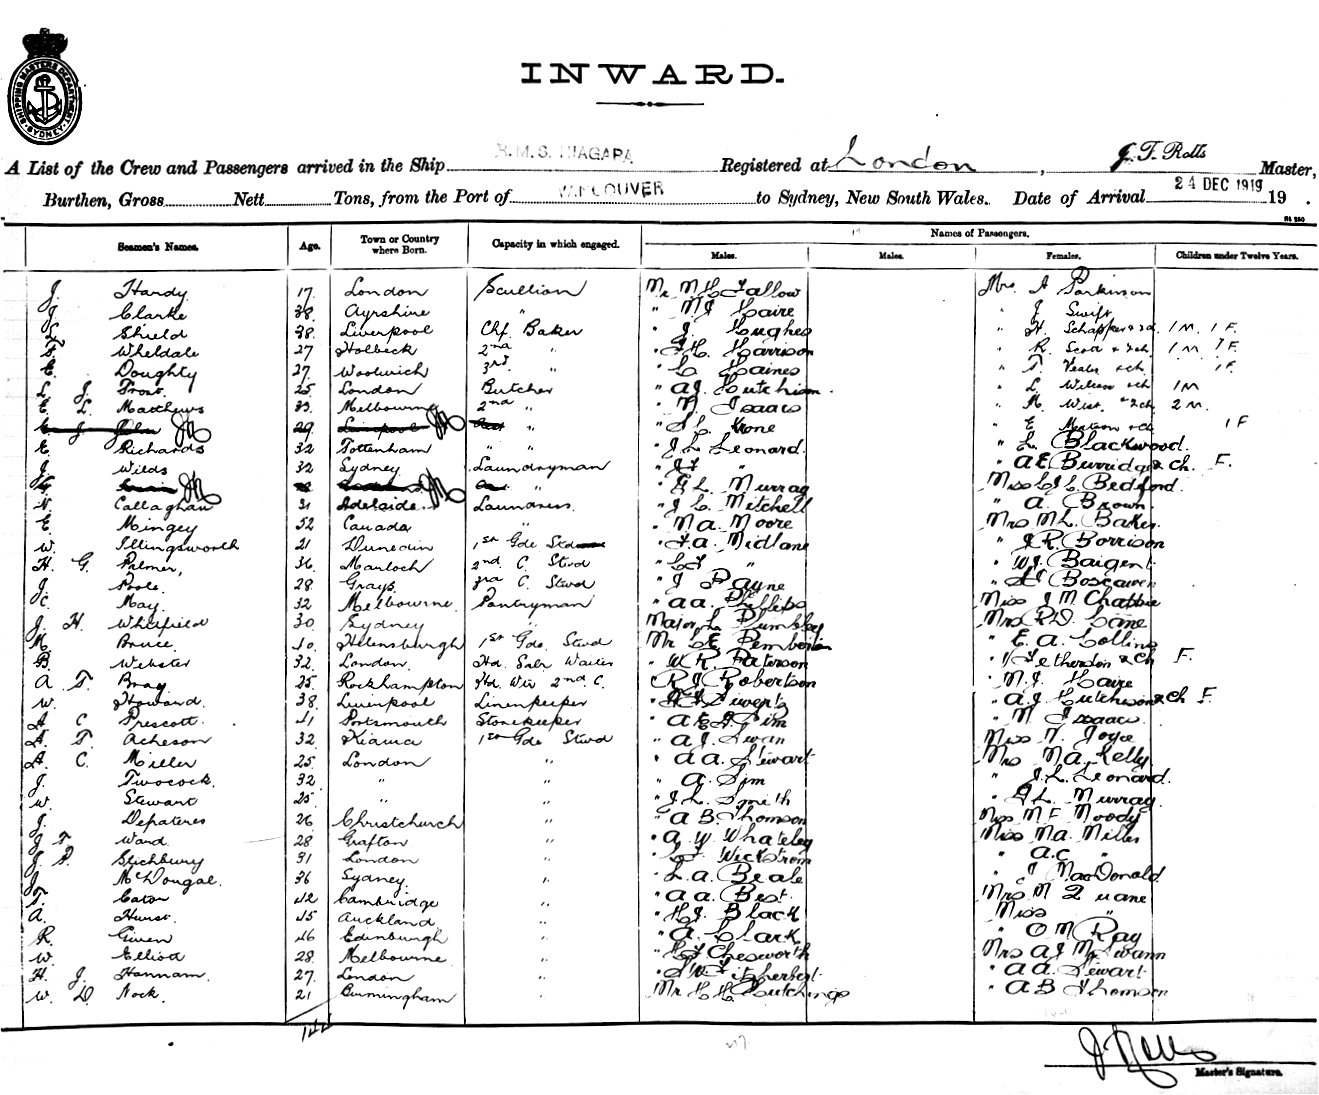 SHIPPING MASTERS DEPARTMENT SYDNEY
INWARD.
A List of the Crew and Passengers arrived in the Ship R.M.S. NIAGARA Registered at London, J. F. Rolls Master,
Burthen, Gross Nett Tons, from the Port of VANCOUVER to Sydney, New South Wales. Date of Arrival 24 DEC 1919 19 .
Seamen's Names. Age. Town or Country where Born. Capacity in which engaged. Names of Passengers.
Males. Males. Females. Children under Twelve Years.
J. Hardy 17 London Scullion Mr M H Fallow Mrs A Parkinson
J. Clarke 38 Ayrshire " " M J Haire " J Swift
Shield 38 Liverpool Chf Baker " J. Hughes " H. 1 M. 1 F.
F. Wheldale 27 Holbeck 2nd " " Harrison " R. Scott & 2ch 1 M 1 F.
C. Doughty 27 Woolwich 3rd " " C Haines " T. & ch 1 F.
L. J. Frost 25 London Butcher " A J. Hutchison " L Wilson & ch 1 M
E. L. Matthews 33 Melbourne 2nd " " N Isaacs " M West & 2ch 2 M.
29 Liverpool " " Kone " E 1 F
E. Richards 32 Tottenham " " J L Leonard. " L. Blackwood.
J. Wilds 32 Sydney Laundryman " " " A E Burridge & ch. F.
" " L. Murray Miss C J L Bedford.
N. Callaghan 31 Adelaide Laundress " J L Mitchell " A. Brown.
E. Mingey 52 Canada " " N a. Moore Mrs M L. Baker.
W. Illingsworth 21 Dunedin 1st Gde Stwd " F. a. Midlane " J R. Borrison
H. G. Palmer, 36 2nd C. Stwd " " " W J. Baigent
J. Poole 28 Grays. 3rd C. Stwd " J Payne " Boscawen
C. May. 32 Melbourne Pantryman " a a. Phillips Miss J M Chabbie
J. H. Whitfield 30 Sydney " Major L. Plumbley Mrs R D. Cane
M. Bruce 40. Helensburgh 1st Gde Stwd Mr L E Pemberton " E. A. Collins
B. Webster 32. London. Hd. Saln Waiter " W. R. Paterson " & Ch F.
A. T. Bray 25 Rockhampton Hd. Wtr 2nd C. " R J Robertson " M. J. Haire
W. Howard. 38. Liverpool Linenkeeper " " A. J. Hutchison & ch F.
A C. Prescott. 41 Portsmouth Storekeeper " Sim " M Isaacs
A. T. Acheson 32 Kiama 1st Gde Stwd " A J. Swan Miss N. Joyce
A. C. Miller 25. London " " a a. Stewart Mrs M A. Kelly
J. Twocock. 32 " " " A. Sim " J. L. Leonard.
W. Stewart 25 " " " J. L. Smith " L. Murray
J. Depateres 26 Christchurch " " A B Thomson Miss M F Moody
J F Ward. 28 Grafton " " A W Whateley Miss M a. Mills
J. P. Stichbury 31 London " " Wickstrom " A. C. "
J. McDougal. 36 Sydney. " " L. a. Beale " J MacDonald
T. Caton 42 Cambridge " " a a. Best. Mrs M Quane
A. Hurst. 45 Auckland " " H. J. Black Miss "
R. Given 46 Edinburgh " " A. Clark " O M Ray
W. Elliott 28. Melbourne " " Chesworth Mrs A J M Swann
H. J. Hannam. 27. London " " Fitzherbert. " A A. Stewart
W. D. Nock. 21 Birmingham " Mr H H Hutchings " A B Thomson
144
J Rolls
Master's Signature.